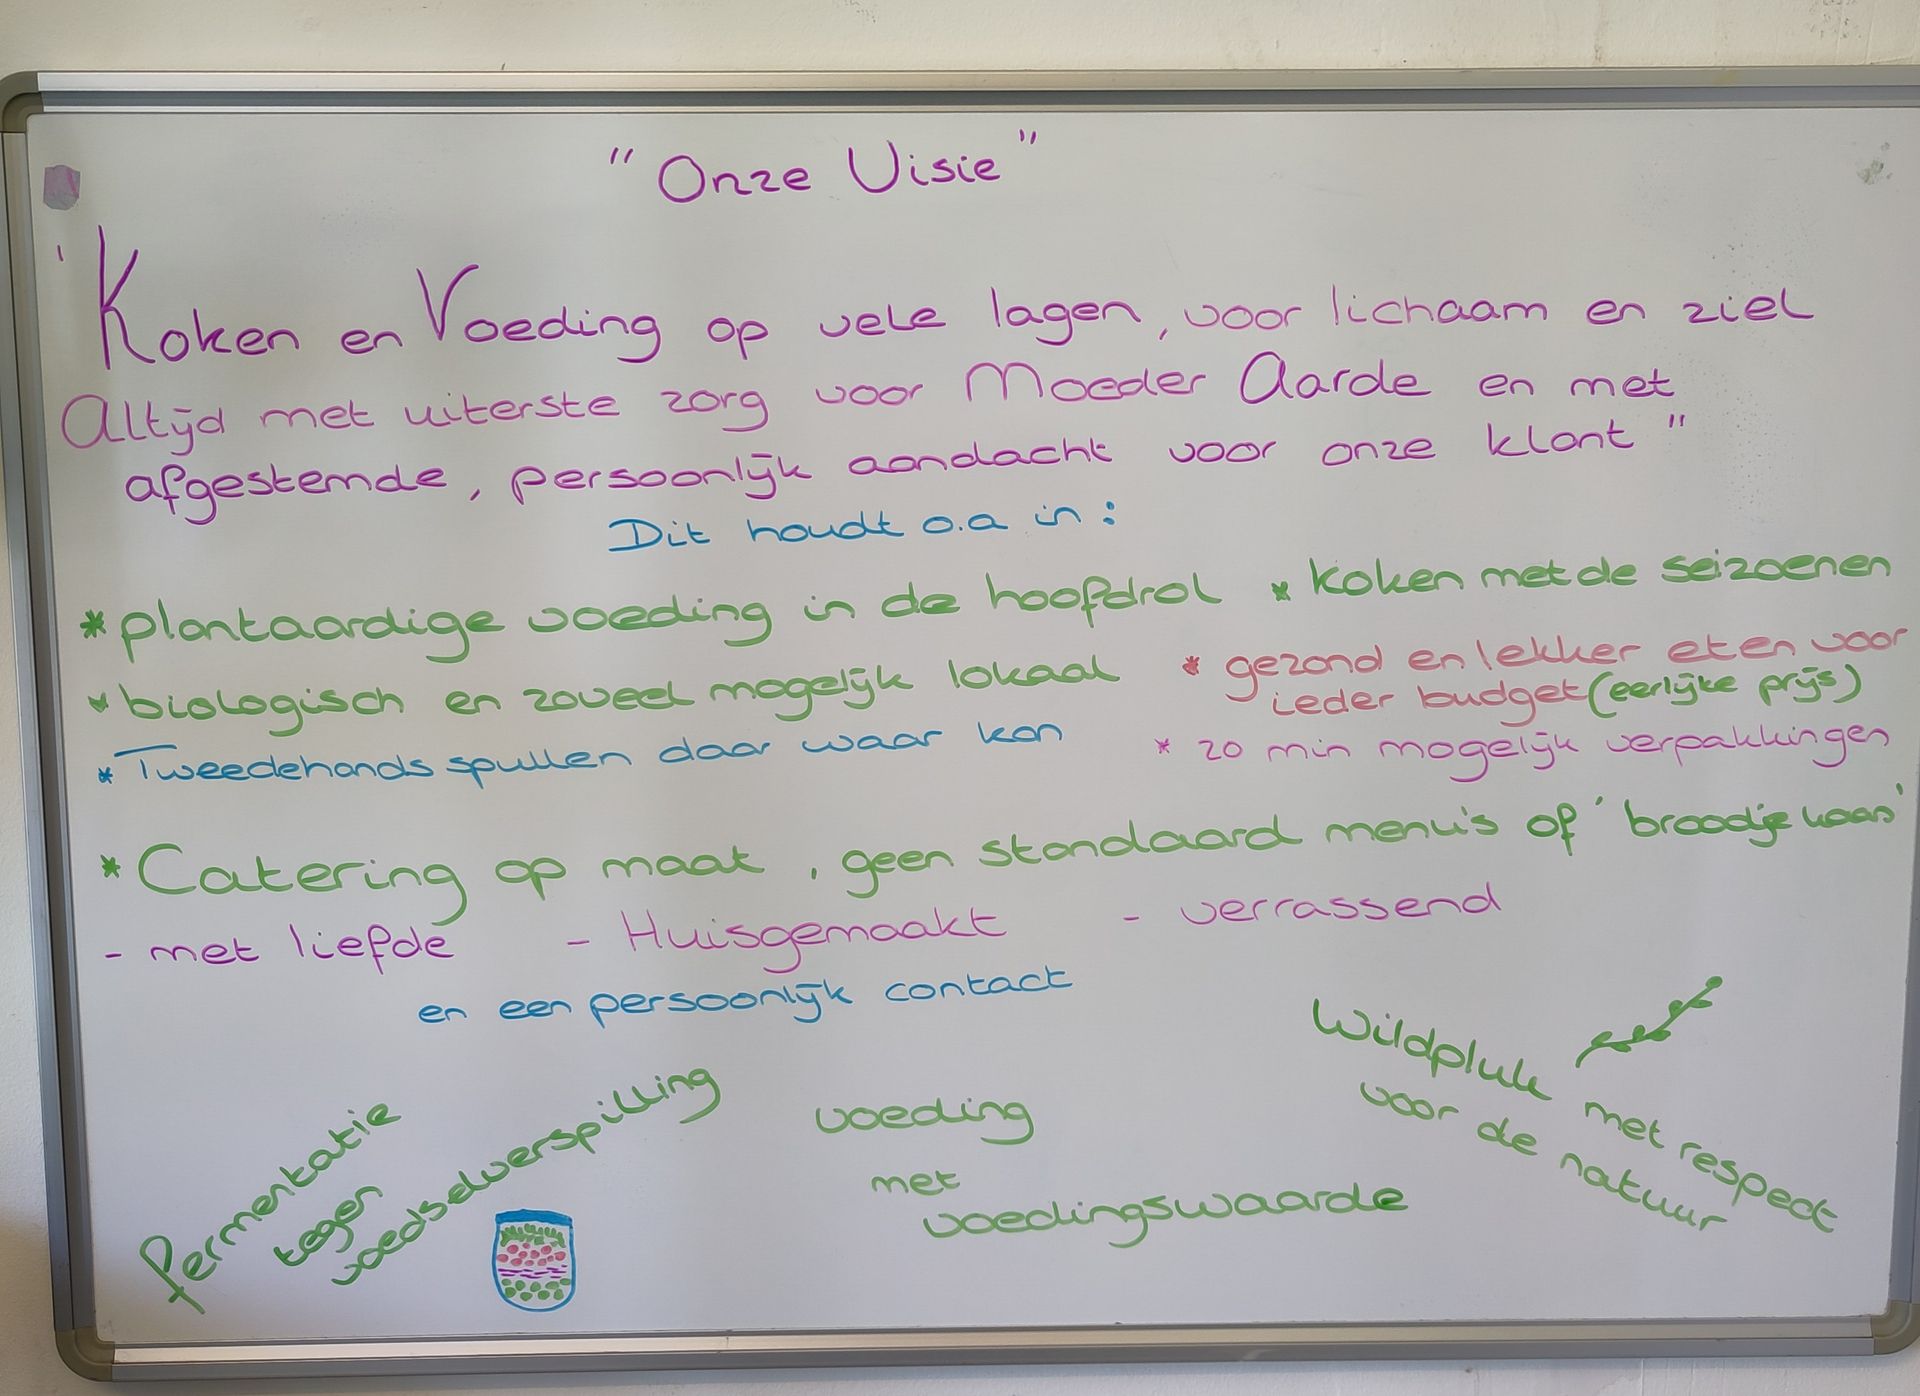 "Onze Visie"
'Koken en Voeding op vele lagen, voor lichaam en ziel
Altijd met uiterste zorg voor Moeder Aarde en met
afgestemde, persoonlijk aandacht voor onze klant"
Dit houdt o.a in:
*plantaardige voeding in de hoofdrol
* koken met de seizoenen
*biologisch en zoveel mogelijk lokaal
* gezond en lekker eten voor
ieder budget (eerlijke prijs)
*Tweedehands spullen daar waar kan
* zo min mogelijk verpakkingen
*Catering op maat, geen standaard menu's of 'broodje kaas'
- met liefde - Huisgemaakt - verrassend
en een persoonlijk contact
fermentatie
tegen
voedselverspilling
voeding
met
voedingswaarde
Wildpluk met respect
voor de natuur